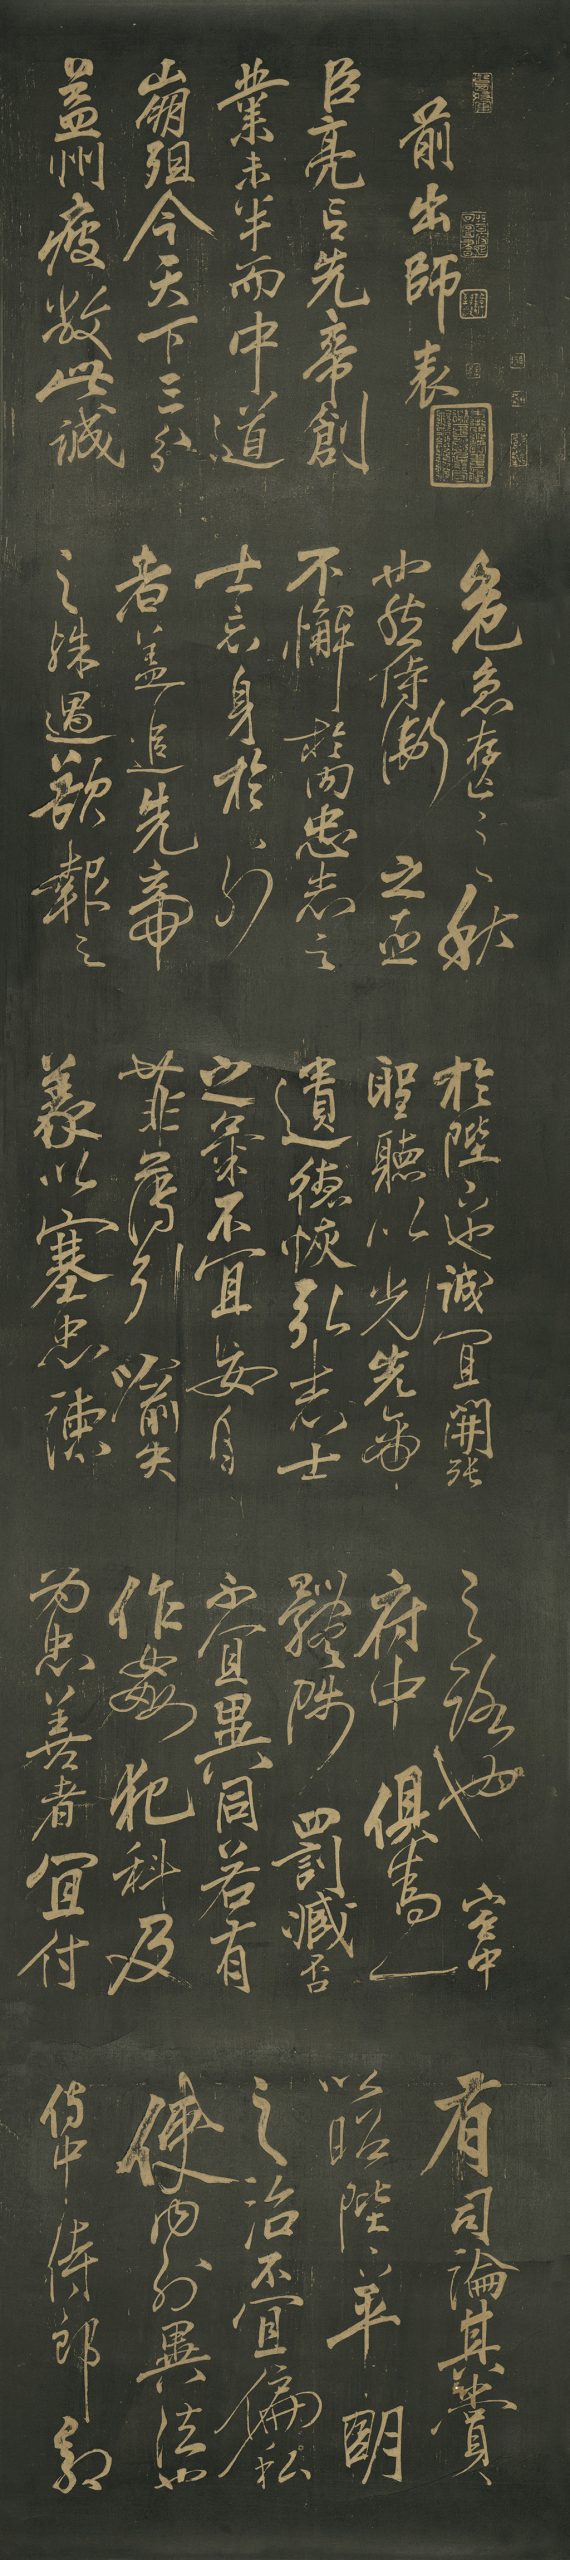 前出師表
臣亮言先帝創
業未半而中道
崩殂今天下三分
益州疲敝此誠
危急存亡之秋
也然侍衛之臣
不懈於內忠志之
士忘身於外
者蓋追先帝
之殊遇欲報之
於陛下也誠宜開張
聖聽以光先帝
遺德恢弘志士
之氣不宜妄自
菲薄引喻失
義以塞忠諫
之路也宮中
府中俱為一
體陟罰臧否
不宜異同若有
作姦犯科及
為忠善者宜付
有司論其賞
以昭陛下平明
之治不宜偏私
使內外異法也
侍中侍郎郭